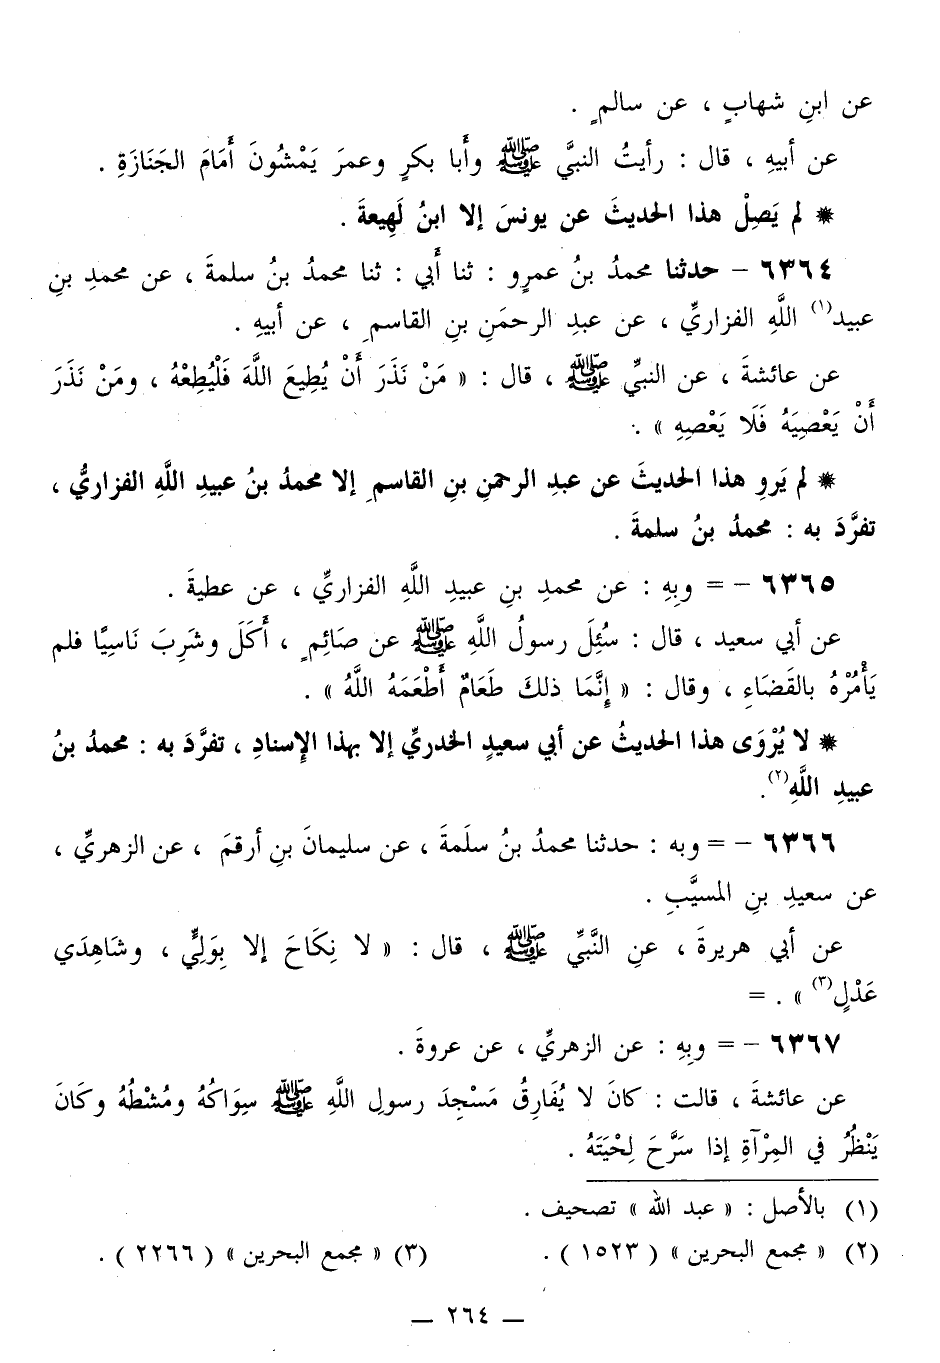 عن ابنِ شهابٍ ، عن سالمٍ .
عن أبيهِ ، قال : رأيتُ النبيَّ ﷺ وأَبا بكرٍ وعمرَ يَمْشُونَ أَمَامَ الجَنَازَةِ .
* لم يَصِلْ هذا الحديثَ عن يونسَ إلا ابنُ لَهِيعةَ .
٦٣٦٤ – حدثنا محمدُ بنُ عمرٍو : ثنا أَبي : ثنا محمدُ بنُ سلمةَ ، عن محمدِ بنِ
عبيد(١) اللَّهِ الفزاريِّ ، عن عبدِ الرحمَنِ بنِ القاسمِ ، عن أبيهِ .
عن عائشةَ ، عن النبيِّ ﷺ ، قال : « مَنْ نَذَرَ أَنْ يُطِيعَ اللَّهَ فَلْيُطِعْهُ ، ومَنْ نَذَرَ
أَنْ يَعْصِيَهُ فَلَا يَعْصِهِ » .
* لم يَروِ هذا الحديثَ عن عبدِ الرحمنِ بنِ القاسمِ إلا محمدُ بنُ عبيدِ اللَّهِ الفزاريُّ ،
تفرَّدَ به : محمدُ بنُ سلمةَ .
٦٣٦٥ – = وبِهِ : عن محمدِ بنِ عبيدِ اللَّهِ الفزاريِّ ، عن عطيةَ .
عن أبي سعيد ، قال : سُئِلَ رسولُ اللَّهِ ﷺ عن صَائِمٍ ، أَكَلَ وشَرِبَ نَاسِيًا فلم
يَأْمُرْهُ بالقَضَاءِ ، وقال : « إِنَّمَا ذلكَ طَعَامٌ أَطْعَمَهُ اللَّهُ » .
* لا يُرْوَى هذا الحديثُ عن أبي سعيدٍ الخدريِّ إلا بهذا الإِسنادِ ، تفرَّدَ به : محمدُ بنُ
عبيدِ اللَّهِ(٢).
٦٣٦٦ – = وبه : حدثنا محمدُ بنُ سلَمةَ ، عن سليمانَ بنِ أرقمَ ، عن الزهريِّ ،
عن سعيدِ بنِ المسيَّبِ .
عن أبي هريرةَ ، عنِ النَّبيِّ ﷺ ، قال : « لا نِكَاحَ إلا بِوَلِيٍّ ، وشَاهِدَي
عَدْلٍ(٣) » . =
٦٣٦٧ – = وبِهِ : عن الزهريِّ ، عن عروةَ .
عن عائشةَ ، قالت : كانَ لا يُفَارِقُ مَسْجِدَ رسولِ اللَّهِ ﷺ سِوَاكُهُ ومُشْطُهُ وكَانَ
يَنْظُرُ في المِرْآةِ إذا سَرَّحَ لِحْيَتَهُ .
(١) بالأصل : « عبد الله » تصحيف .
(٢) « مجمع البحرين » ( ١٥٢٣ ) . (٣) « مجمع البحرين » ( ٢٢٦٦ ) .
— ٢٦٤ —